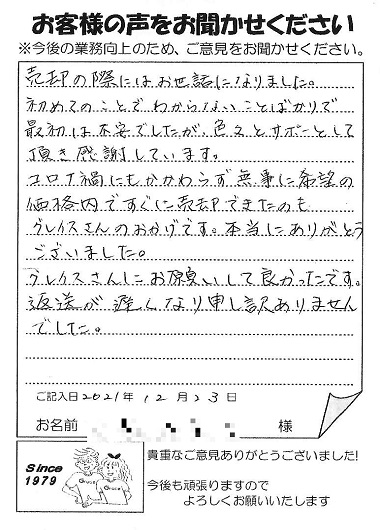 お客様の声をお聞かせください
※今後の業務向上のため、ご意見をお聞かせください。
売却の際にはお世話になりました。
初めてのことでわからないことばかりで
最初は不安でしたが、色々とサポートして
頂き感謝しています。
コロナ禍にもかかわらず無事に希望の
価格内ですぐに売却できたのも
グレイスさんのおかげです。本当にありがとう
ございました。
グレイスさんにお願いして良かったです。
返送が遅くなり申し訳ありません
でした。
ご記入日 2021年 12月 23日
お名前 様
Since
1979
貴重なご意見ありがとうございました!
今後も頑張りますので
よろしくお願いいたします